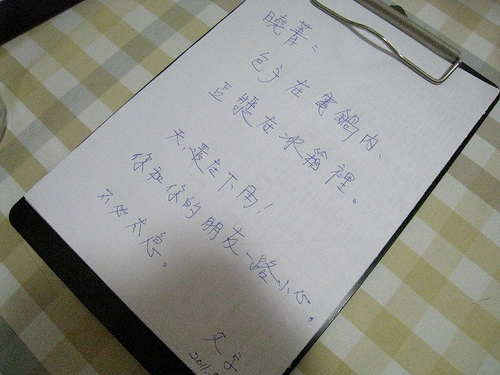 曉菁:
包子在電鍋內、
豆漿在冰箱裡。
天,還在下雨!
你和你的朋友一路小心。
不必太急。
文
2011.